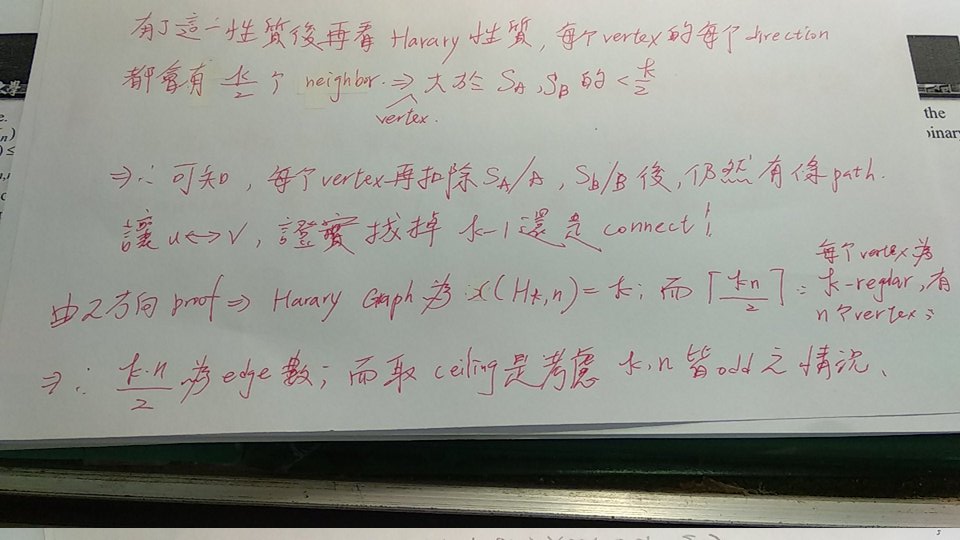 有了這一性質後再看 Harary 性質, 每个vertex的每个direction
都會有 k/2 个 neighbor. ⇒ 大於 SA, SB 的 < k/2
vertex.
⇒ ∴ 可知, 每个vertex再扣除 SA/A, SB/B 後, 仍然有條path.
讓 u↔v, 證實拔掉 k-1 還是 connect!
由2方向 proof ⇒ Harary Graph 為 x(Hk,n) = k; 而 ⌈kn/2⌉:
每个vertex為
k-reglar, 有
n个vertex;
⇒ ∴ k·n/2 為 edge 數; 而取 ceiling 是考慮 k, n 皆odd之情況.
the